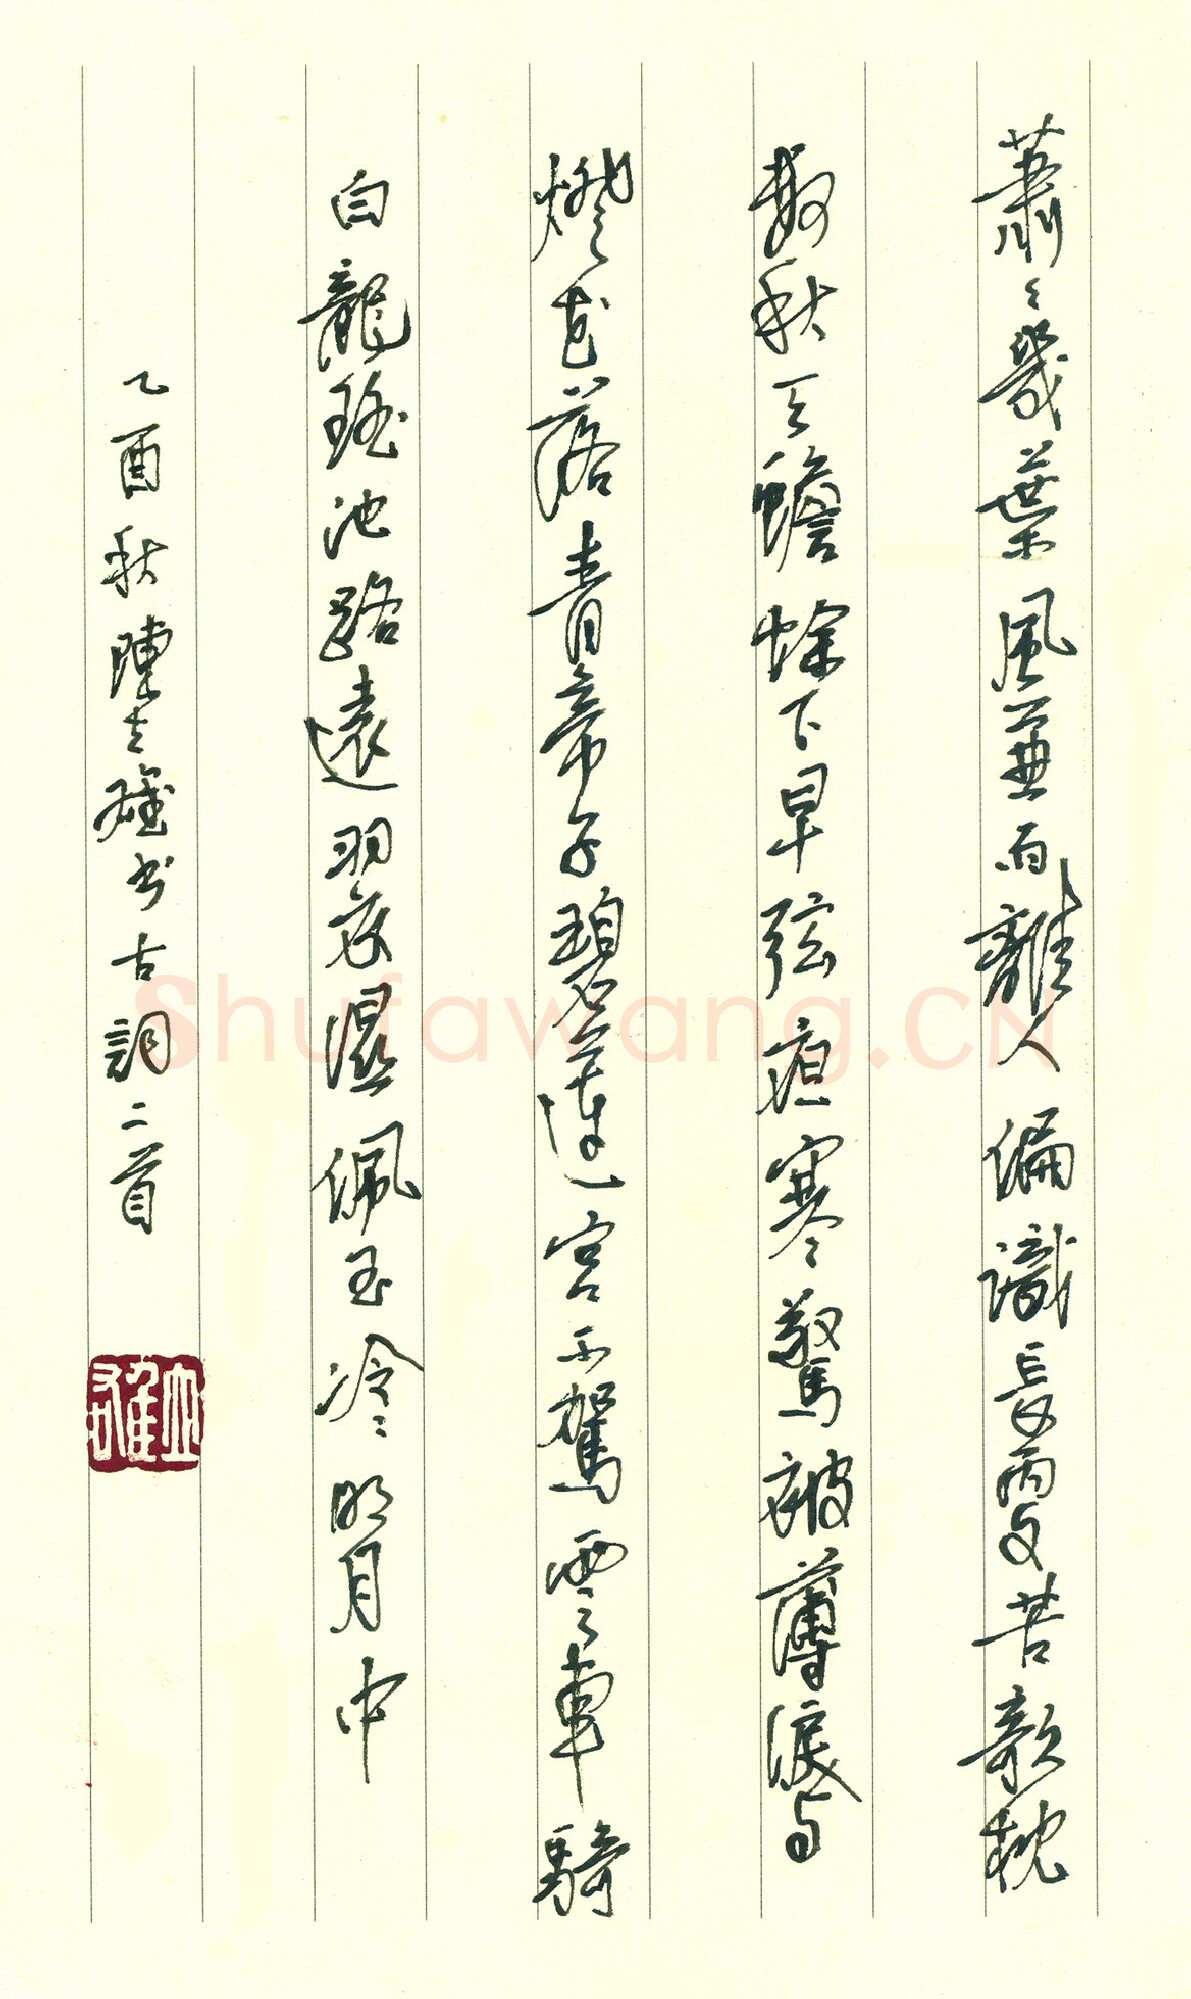 蕭〻幾葉風兼雨離人偏識長更苦欹枕
數秋天蟾蜍下早弦夜寒驚被薄淚與
燈花落青帝子碧蓮宮不駕雲車騎
白龍瑤池路遠羽衣濕佩玉冷明月中
乙酉秋陳立雄書古詞二首
Shufawang.CN